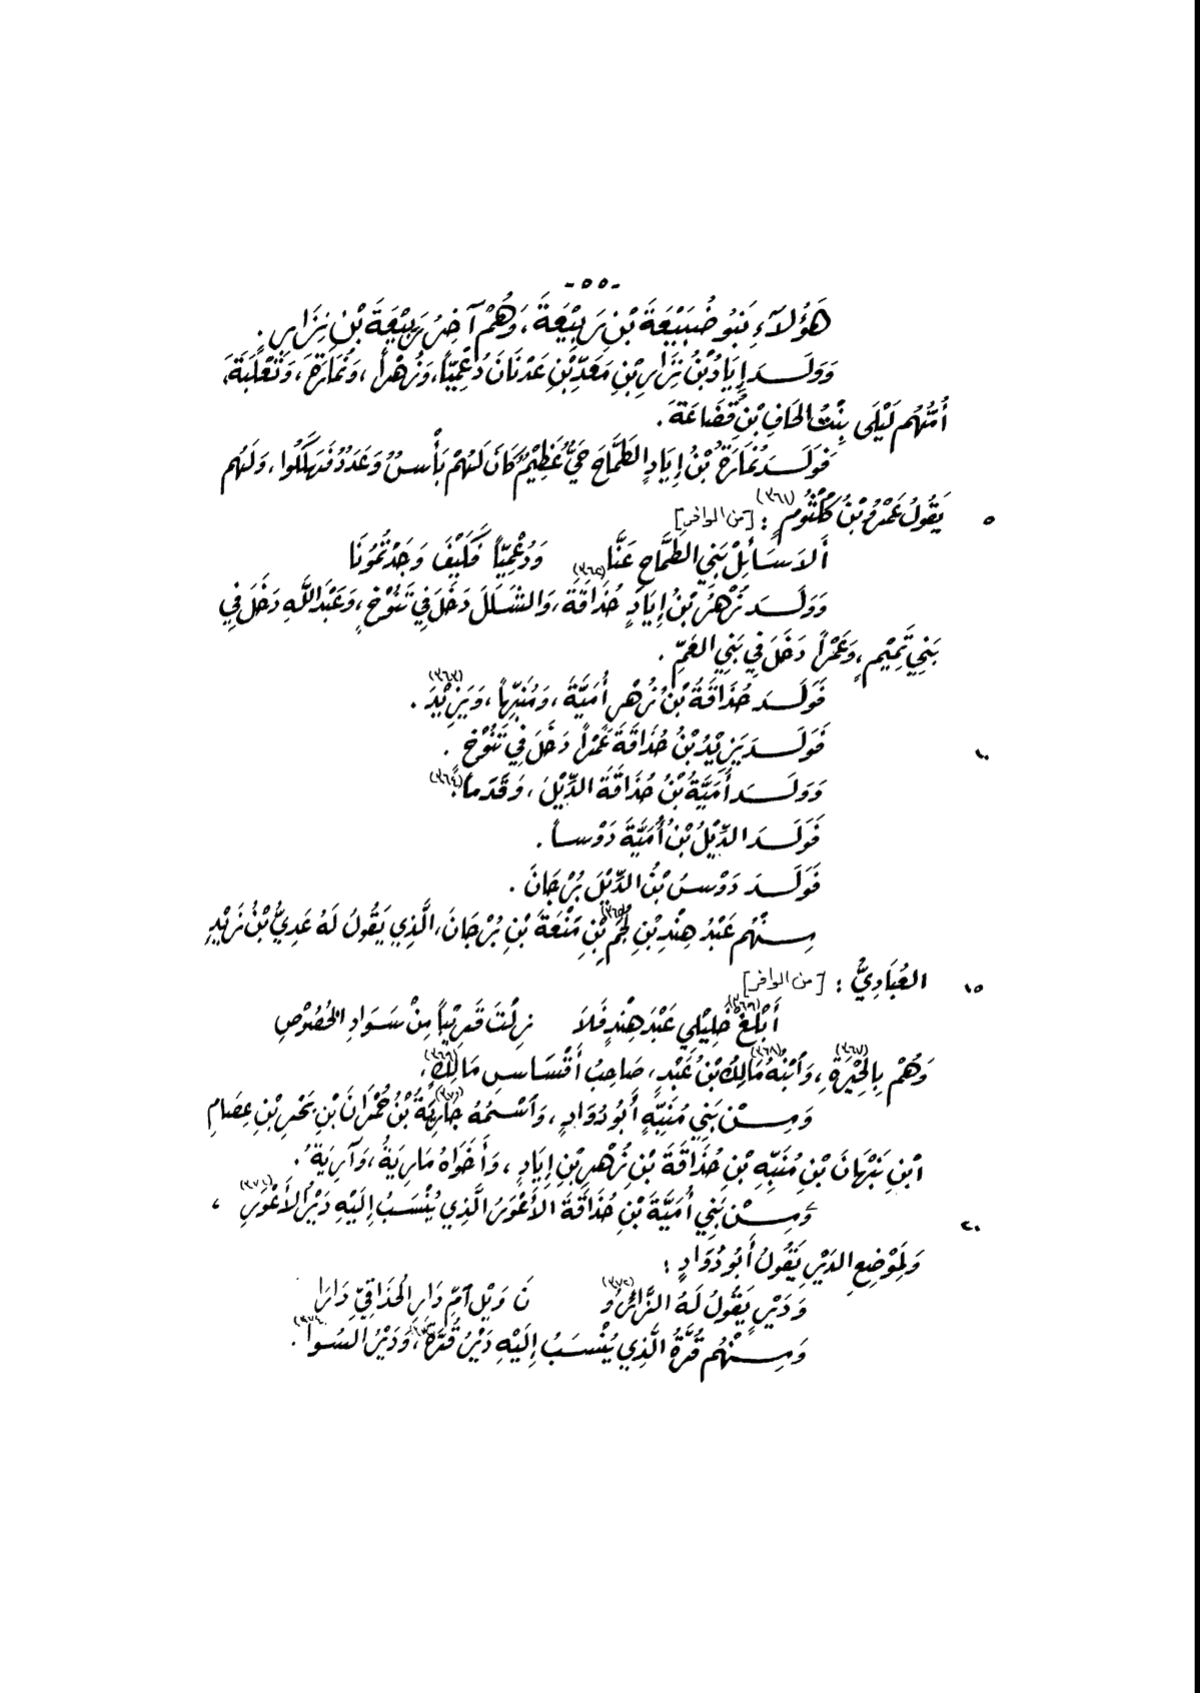 -٥٥-
هَؤُلاَءِ بَنُو ضُبَيْعَةَ بْنِ رَبِيْعَةَ، وَهُمْ آخِرُ رَبِيْعَةَ بْنِ نِزَارٍ.
وَوَلَـدَ إِيَادُ بْنُ نِزَارِ بْنِ مَعَدِّ بْنِ عَدْنَانَ دُعْمِيّاً، وَزُهْراً، وَنُمَارَةَ، وَثَعْلَبَةَ،
أُمُّهُم لَيْلَى بِنْتُ الحَافِ بْنِ قُضَاعَةَ.
فَوَلَـدَ نُمَارَةُ بْنُ إِيَادٍ الطَّمَّاحَ حَيٌّ عَظِيْمٌ كَانَ لَهُمْ بَأْسٌ وَعَدَدٌ فَهَلَكُوا، وَلَهُم
٥ يَقُولُ عَمْرُو بْنُ كُلْثُومٍ (٣٦١): [من الوافر]
أَلاَ سَائِلْ بَنِي الطَّمَّاحِ عَنَّا (٣٦٢) وَدُعْمِيّاً فَكَيْفَ وَجَدْتُمُونَا
وَوَلَـدَ زُهْرُ بْنُ إِيَادٍ حُذَاقَةَ، وَالشَّلَلَ دَخَلَ فِي تَنُوْخٍ، وَعَبْدَ اللَّهِ دَخَلَ فِي
بَنِي تَمِيْمٍ، وَعَمْراً دَخَلَ فِي بَنِي العَمِّ.
فَوَلَـدَ حُذَاقَةُ بْنُ زُهْرٍ أُمَيَّةَ، وَمُنَبِّهاً، وَيَزِيْدَ (٣٦٣).
١٠ فَوَلَـدَ يَزِيْدُ بْنُ حُذَاقَةَ عَمْراً دَخَلَ فِي تَنُوْخَ.
وَوَلَـدَ أُمَيَّةُ بْنُ حُذَاقَةَ الدِّيْلَ، وَقَدَماً (٣٦٤).
فَوَلَـدَ الدِّيْلُ بْنُ أُمَيَّةَ دَوْساً.
فَوَلَـدَ دَوْسُ بْنُ الدِّيْلِ بُرْجَانَ.
مِـنْهُم عَبْدُ هِنْدِ بْنِ لُجَمِ (٣٦٥) بْنِ مَنْعَةَ بْنِ بُرْجَانَ، الَّذِي يَقُولُ لَهُ عَدِيُّ بْنُ زَيْدٍ
١٥ العُبَادِيُّ: [من الوافر]
أَبْلِغْ (٣٦٦) خَلِيْلِي عَبْدَ هِنْدٍ فَلاَ زِلْتَ قَرِيْباً مِنْ سَوَادِ الخُصُوْصِ
وَهُمْ بِالحِيْرَةِ (٣٦٧)، وَابْنُهُ مَالِكُ (٣٦٨) بْنُ عَبْدٍ، صَاحِبُ أَقْسَاسِ مَالِكٍ (٣٦٩)،
وَمِـنْ بَنِي مُنَبِّهٍ أَبُو دُوَادٍ، وَاسْـمُهُ جَارِيَةُ (٣٧٠) بْنُ حُمْرَانَ بْنِ بَحْرِ بْنِ عِصَامِ
ابْنِ نَبْهَانَ بْنِ مُنَبِّهِ بْنِ حُذَاقَةَ بْنِ زُهْرِ بْنِ إِيَادٍ، وَأَخَوَاهُ مَارِيَةُ، وَآرِيَةُ.
٢٠ وَمِـنْ بَنِي أُمَيَّةَ بْنِ حُذَاقَةَ الأَعْوَرُ الَّذِي يُنْسَبُ إِلَيْهِ دَيْرُ الأَعْوَرِ (٣٧١)،
وَلِمَوْضِعِ الدَيْرِ يَقُولُ أَبُو دُوَادٍ:
وَدَيْرٍ يَقُولُ لَهُ الزَّائِرُو (٣٧٢) نَ وَيْلُ آمِّ دَارِ الحُذَاقِيِّ دَارَا
وَمِـنْهُم قُرَّةُ الَّذِي يُنْسَبُ إِلَيْهِ دَيْرُ قُرَّةَ (٣٧٣)، وَدَيْرُ السَّوَا (٣٧٤).